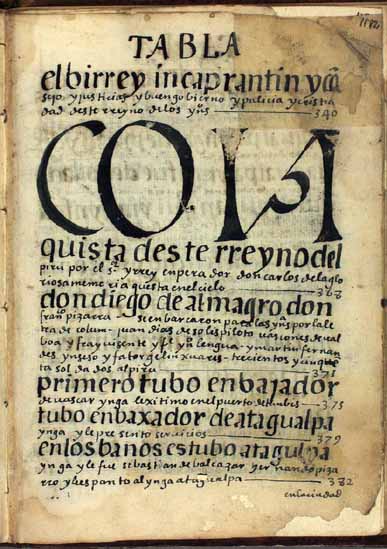 TABLA
el birrey ynca prantin y cō
sejo y justicias y buen gobierno y pulicia y cristia
dad deste rreyno de los yns 340
CÕ LA
quista deste rreyno del
piru por el sr y rrey enperador don carlos de la glo
riosa memoria questa en el cielo 368
don diego de almagro don
franco pizarra se enbarcaron para las yns por la le
tra de colum juan dias de soles piloto uasiones de ual
boa y fray uisente y fe yn lengua y martin fernan
des ynseso y fator gelin xuares trecientos y cinque
ta soldados al piru 373
primero tubo enbajador
de uascar ynga lexitimo en el puerto de tunbes 375
tubo enbaxador de atagualpa
ynga y le presento servicios 379
en los banos estubo atagualpa
ynga y le fue sebastian de balcazar y ernando piza
rro y les panto al ynga atagualpa 382
en la ciudad